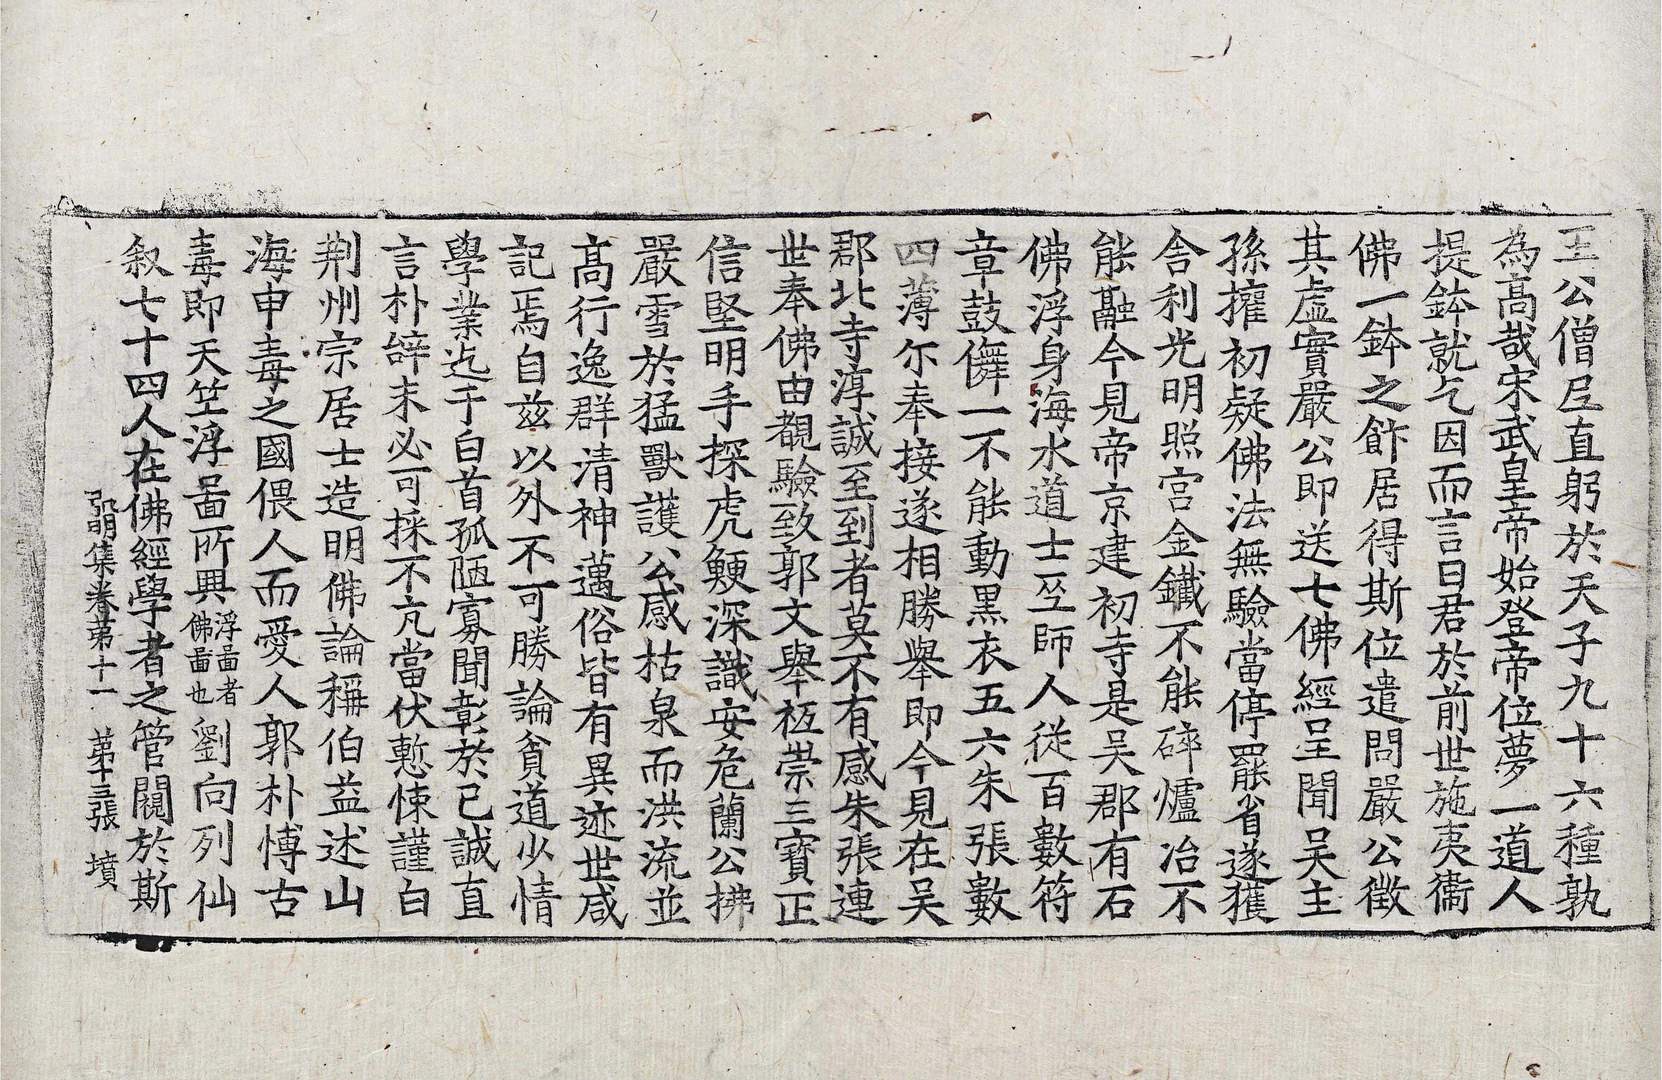 王公僧尼直躬於天子九十六種孰
為高哉宋武皇帝始登帝位夢一道人
提鉢就乞因而言曰君於前世施夷衞
佛一鉢之飰居得斯位遣問嚴公徵
其虛實嚴公即送七佛經呈聞吳主
孫攉初疑佛法無驗當停罷省遂獲
舎利光明照宫金鐵不能碎爐冶不
能融今見帝京建初寺是吴郡有石
佛浮身海水道士巫師人從百數符
章鼓儛一不能動黒衣五六朱張數
四薄尓奉接遂相勝舉即今見在吴
郡北寺淳誠至到者莫不有感朱張連
世奉佛由覩驗致郭文舉祗崇三寶正
信堅明手探虎鯁深識安危蘭公拂
嚴雪於猛獸護公感枯泉而洪流並
髙行逸群清神邁俗皆有異迹世咸
記焉自兹以外不可勝論貧道少情
學業迄于白首孤陋寡聞彰於已誠直
言朴辞未必可採不亢當伏慙悚謹白
荆州宗居士造明佛論稱伯益述山
海申毒之國偎人而愛人郭朴愽古
毒即天竺浮啚所興浮啚者佛啚也劉向列仙
叙七十四人在佛經學者之管闚於斯
弘明集卷苐十一 苐十三張 墳